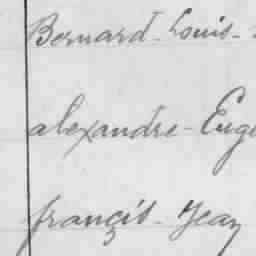 Bernard-Louis-
alexandre-Euge
françis-Jean